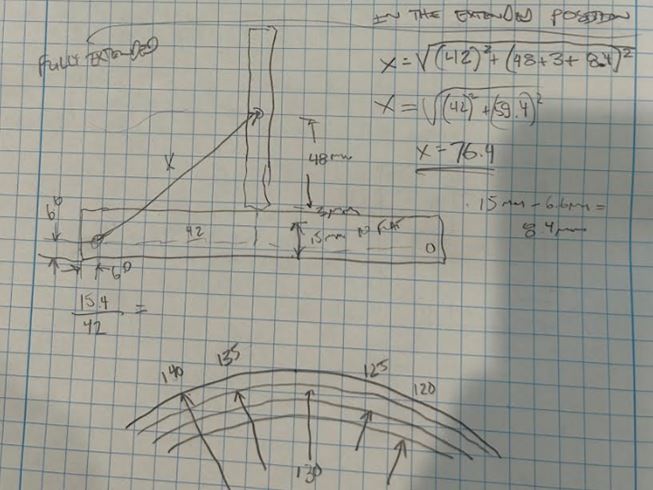 IN THE EXTENDED POSITION
FULLY EXTENDED
X = √(42)² + (48+3+8.4)²
X = √(42)² + (59.4)²
X = 76.4
X
48mm
3mm
15mm
42
O
15mm - 6.6mm =
8.4mm
15.4
42
=
140
135
125
120
130